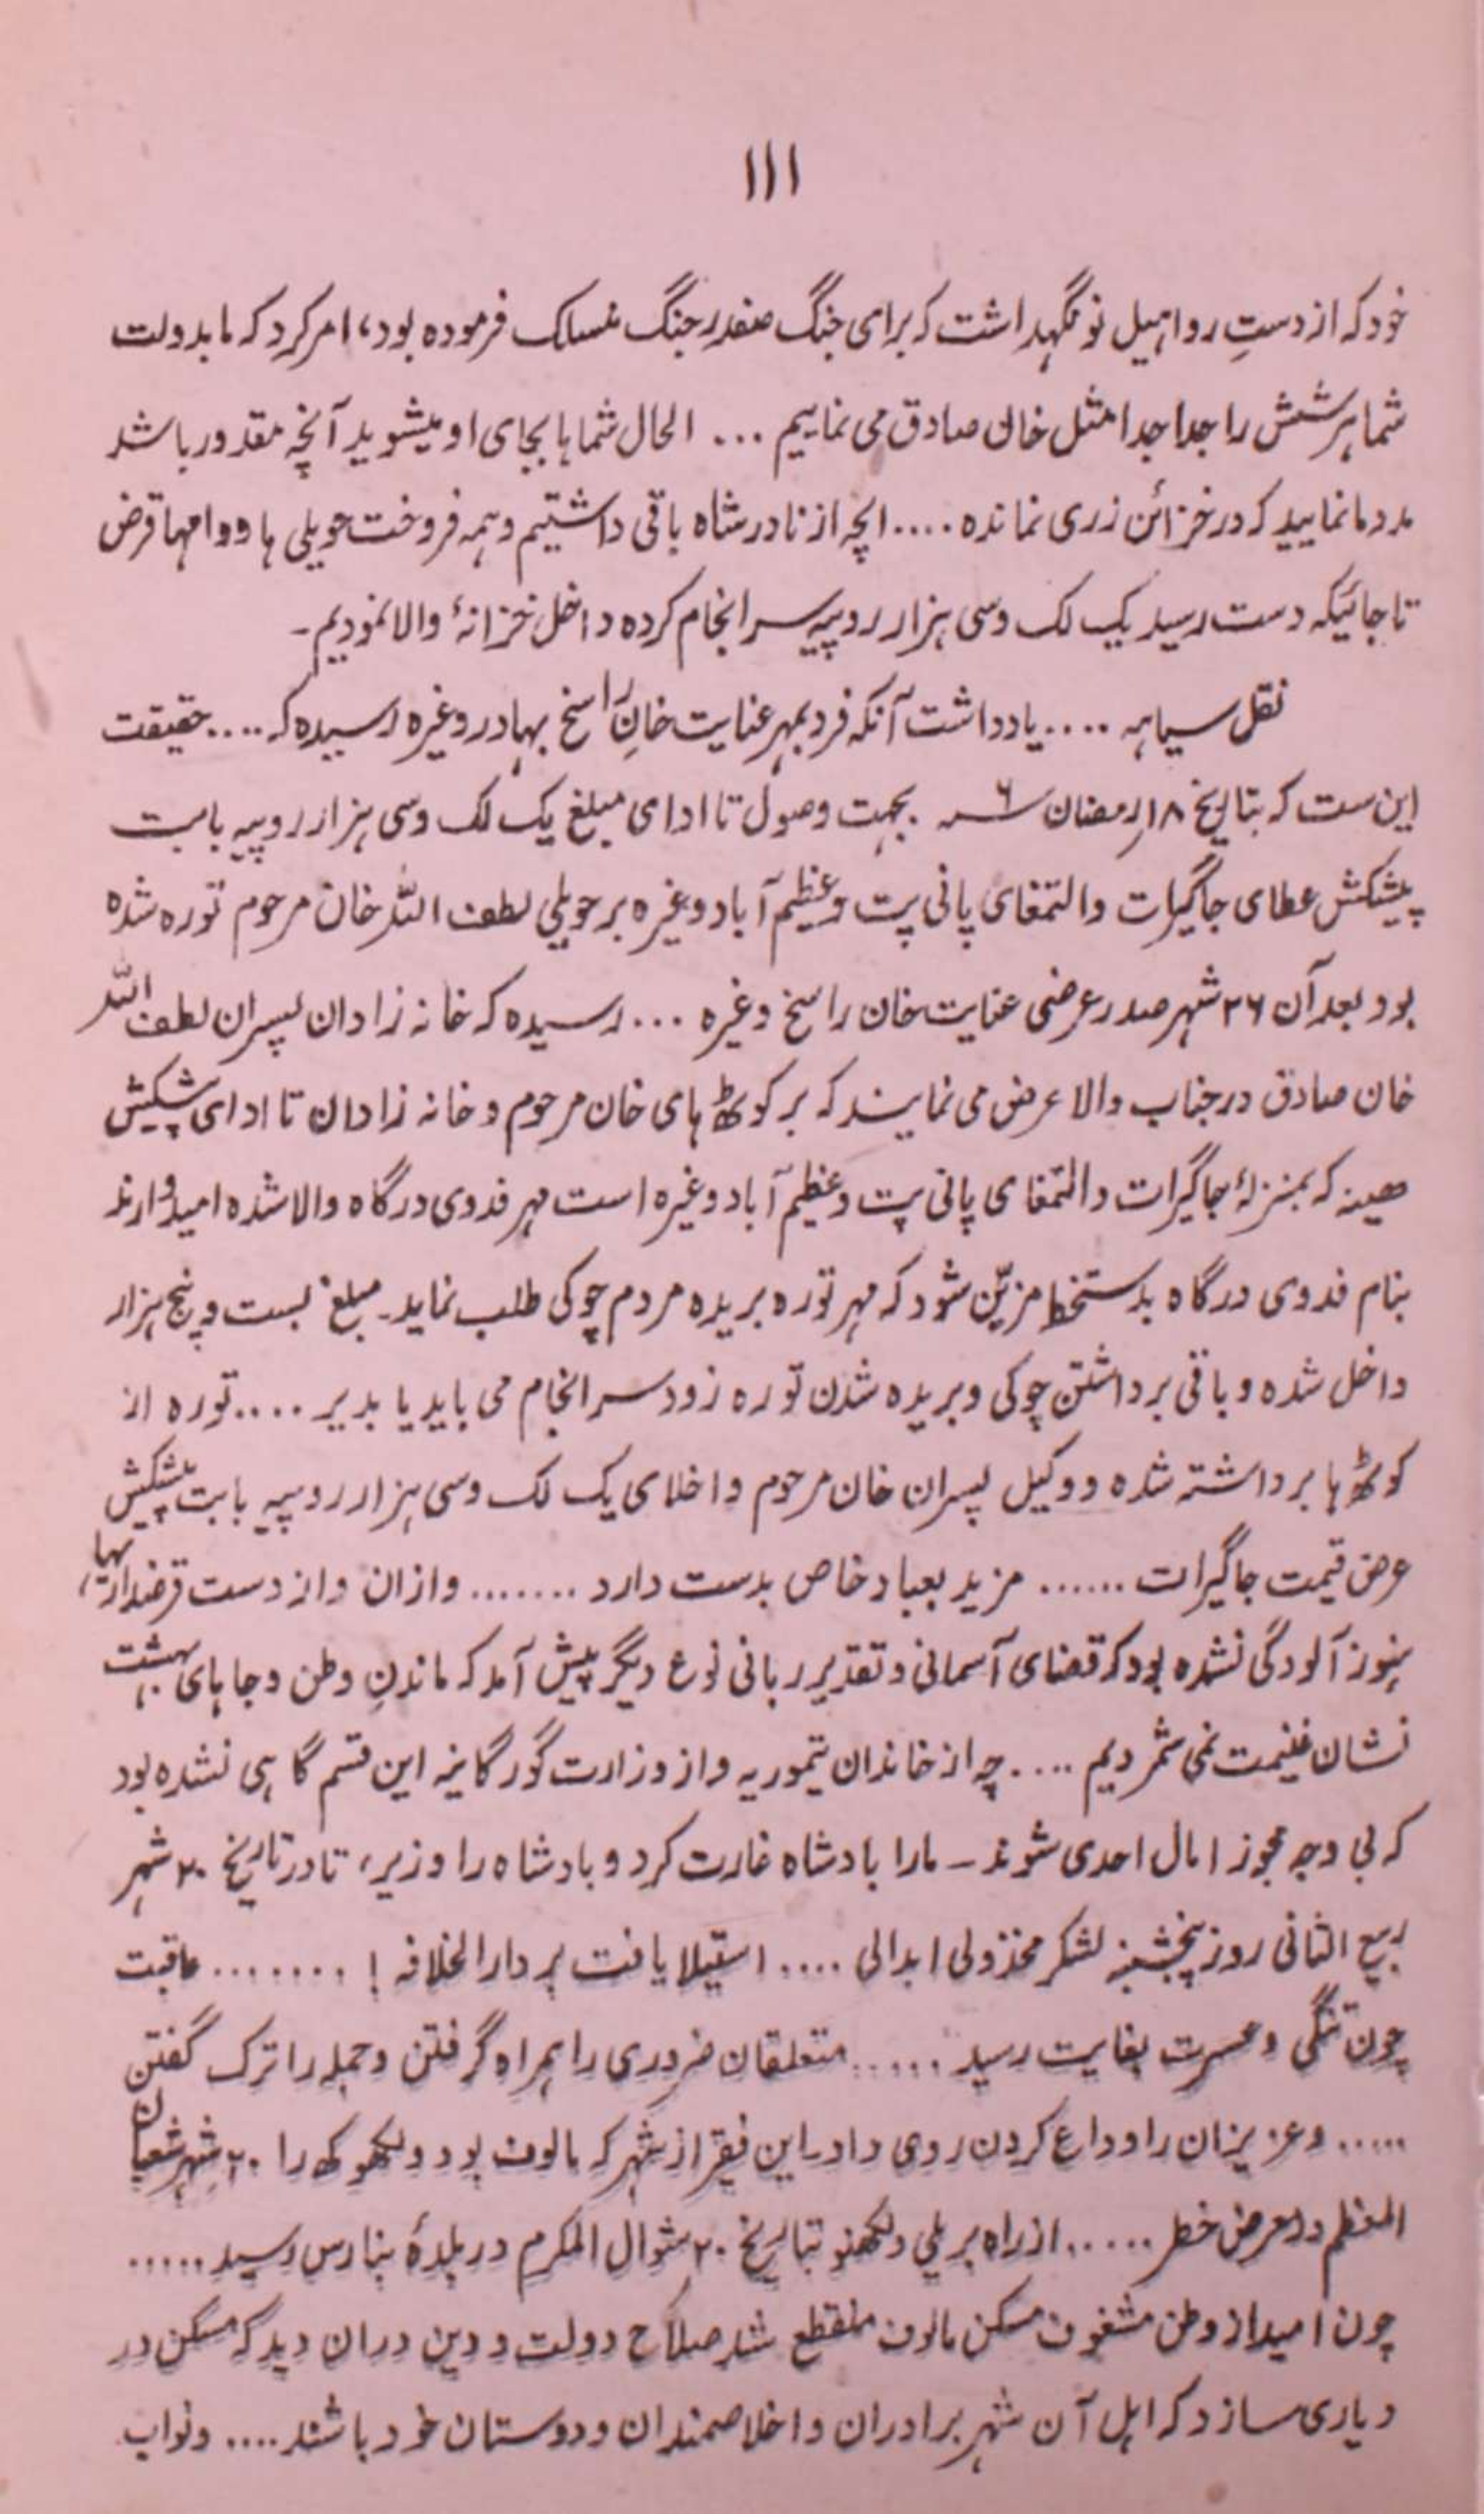 ۱۱۱
خود که از دستِ رواهیل نو نگهداشت که برای جنگ صفدر جنگ منسلک فرموده بود، امر کرد که ما بدولت
شما هر شش را جدا جدا مثل خان صادق می نماییم ... الحال شماها بجای او میشوید آنچه مقدور باشد
مدد ما نمایید که در خزائن زری نمانده .... انچه از نادر شاه باقی داشتیم و همه فروخت حویلی ها و وامها قرض
تا جائیکه دست رسید یک لک و سی هزار روپیه سرانجام کرده داخل خزانۀ والا نمودیم۔
نقل سیاهه .... یادداشت آنکه فرد بمهر عنایت خانِ راسخ بهادر وغیره رسیده که .... حقیقت
این ست که بتاریخ ۱۸ رمضان سنه ۶ بجهت وصول تا ادای مبلغ یک لک و سی هزار روپیه بابت
پیشکش عطای جاگیرات والتمغای پانی پت و عظیم آباد وغیره بر حویلی لطف اللہ خان مرحوم توره شده
بود بعد آن ۲۶ شهر صدر عرضی عنایت خان راسخ وغیره ... رسیده که خانه زادان پسران لطف اللہ
خان صادق در جناب والا عرض می نمایند که بر کوٹھ های خان مرحوم و خانه زادان تا ادای پیشکش
که بمنزلۀ جاگیرات والتمغای پانی پت و عظیم آباد وغیره است مهر فدوی درگاه والا شده امیدوارند
بنام فدوی درگاه بدستخط مزیّن شود که مهر توره بریده مردم چوکی طلب نماید۔ مبلغ بست و پنج هزار
داخل شده و باقی برداشتن چوکی و بریده شدن توره زود سرانجام می یابد یا بدیر .... توره از
کوٹھ ها برداشته شده و وکیل پسران خان مرحوم داخلای یک لک و سی هزار روپیه بابت پیشکش
عرض قیمت جاگیرات ...... مزید بعباد خاص بدست دارد ....... و ازان و از دست قرضداریها،
هنوز آلودگی نشده بود که قضای آسمانی و تقدیر ربانی نوع دیگر پیش آمد که ماندنِ وطن و جاهای بهشت
نشان غنیمت نمی شمردیم .... چه از خاندان تیموریه و از وزارت گورگانیه این قسم گاهی نشده بود
که بی وجه مجوز امال احدی شوند ۔ ما را بادشاه غارت کرد و بادشاه را وزیر، تا در تاریخ ۲۰ شهر
ربیع الثانی روز پنجشنبه لشکر مخذولی ابدالی .... استیلا یافت بر دار الخلافه ! ....... عاقبت
چون تنگی و عسرت بغایت رسید ..... متعلقان ضروری را همراه گرفتن و جمله را ترک گفتن
..... و عزیزان را وداع کردن روی داد. این فقیر از شهر که مالوف بود و را ۲۰ شهر شعبان
المعظم در معرض خطر ...... از راه بریلی و لکھنو بتاریخ ۲۰ شوال المکرم در بلدۀ بنارس رسید .....
چون امید از وطن مشغوف مسکن مالوف منقطع شد صلاح دولت و دین دران دید که مسکن در
دیاری سازد که اهل آن شهر برادران و اخلاصمندان و دوستان خود باشند .... و نواب